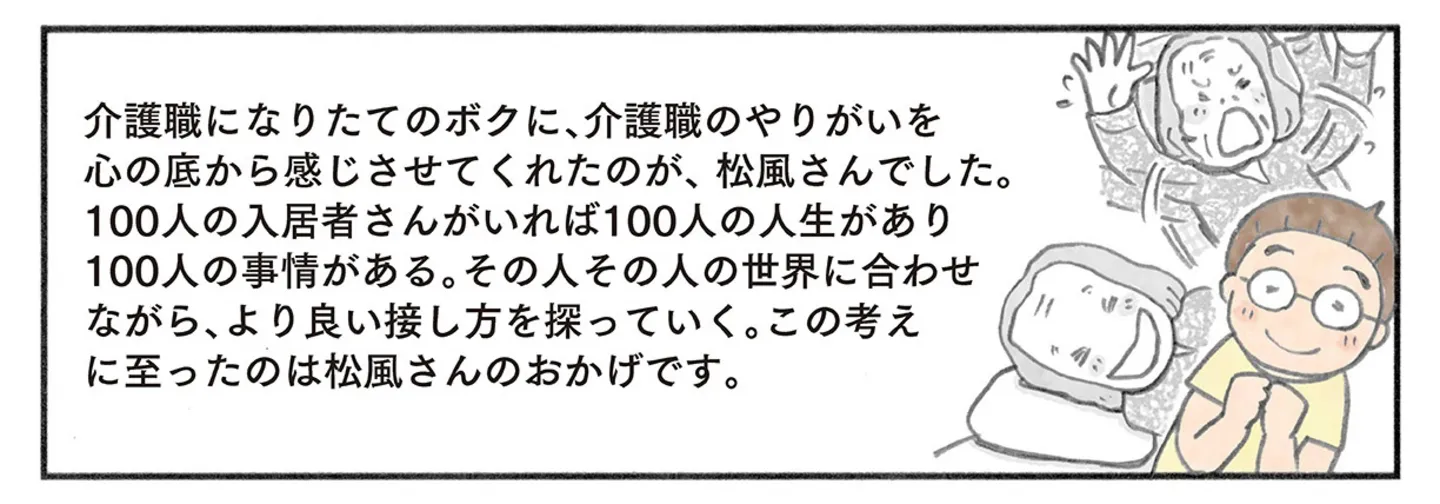 介護職になりたてのボクに、介護職のやりがいを
心の底から感じさせてくれたのが、松風さんでした。
100人の入居者さんがいれば100人の人生があり
100人の事情がある。その人その人の世界に合わせ
ながら、より良い接し方を探っていく。この考え
に至ったのは松風さんのおかげです。